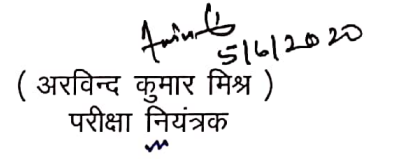 5/6/2020
( अरविन्द कुमार मिश्र )
परीक्षा नियंत्रक